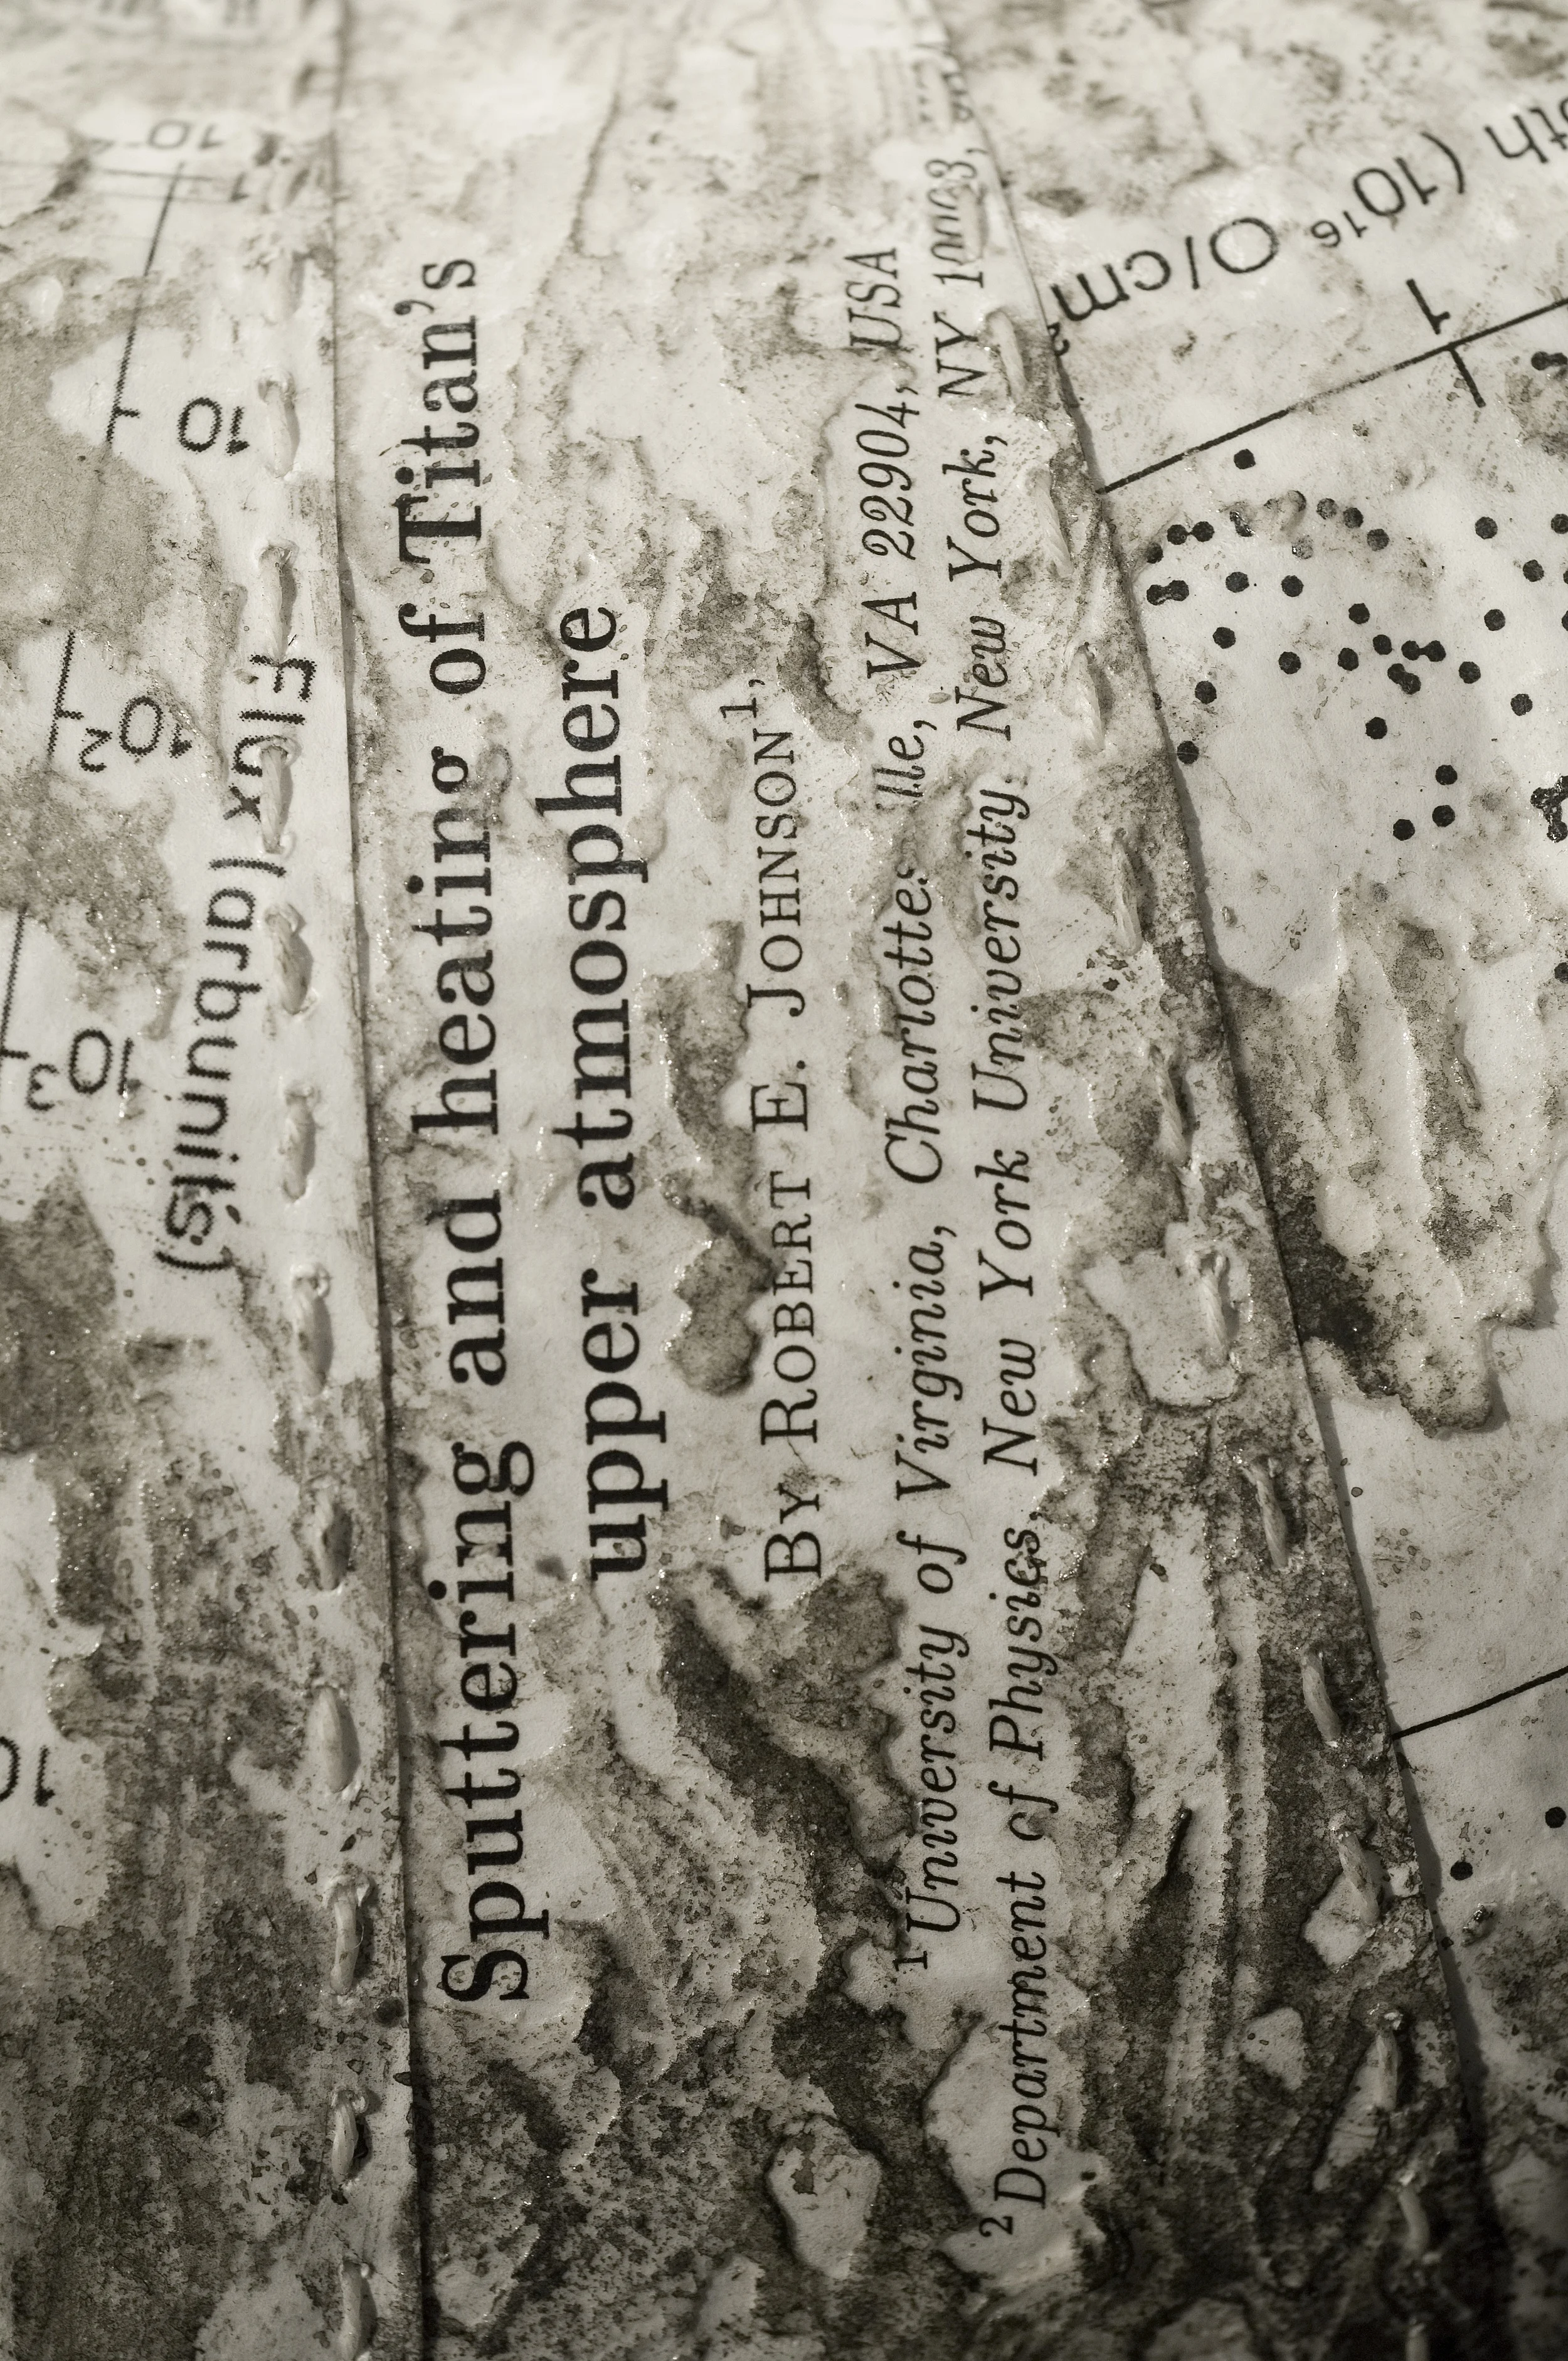 Sputtering and heating of Titan's
upper atmosphere
BY ROBERT E. JOHNSON¹,
¹University of Virginia, Charlottes lle, VA 22904, USA
²Department of Physics, New York University, New York, NY 10003,
Flux (arb.units)
10
10²
10³
10
10⁻²
th (10¹⁶ O/cm²
1